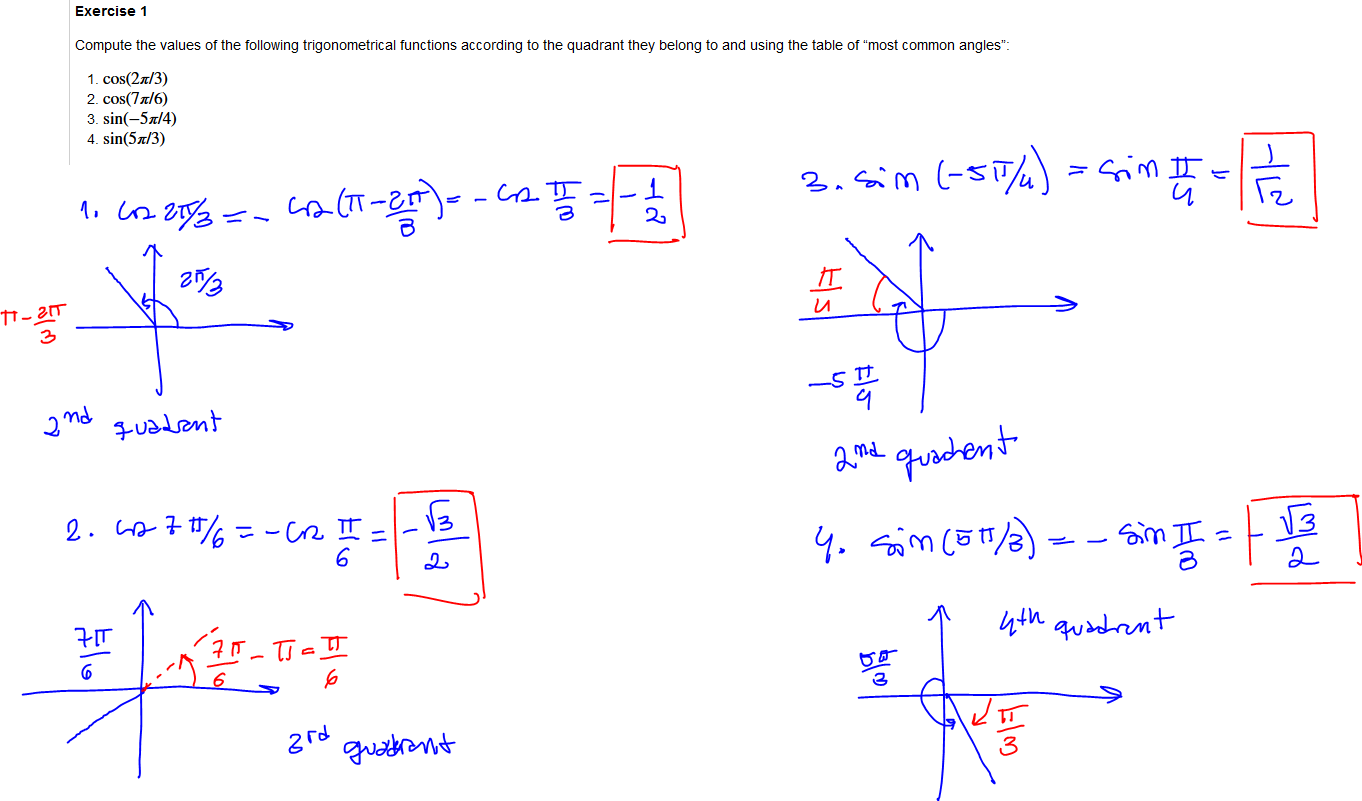 Exercise 1
Compute the values of the following trigonometrical functions according to the quadrant they belong to and using the table of “most common angles”:
1. cos(2π/3)
2. cos(7π/6)
3. sin(−5π/4)
4. sin(5π/3)
1. cos 2π/3 = - cos(π - 2π/3) = - cos π/3 = - 1/2
2π/3
π - 2π/3
2nd quadrant
2. cos 7π/6 = - cos π/6 = - √3/2
7π/6
7π/6 - π = π/6
3rd quadrant
3. sin (-5π/4) = sin π/4 = 1/√2
π/4
-5 π/4
2nd quadrant
4. sin (5π/3) = - sin π/3 = - √3/2
4th quadrant
5π/3
π/3